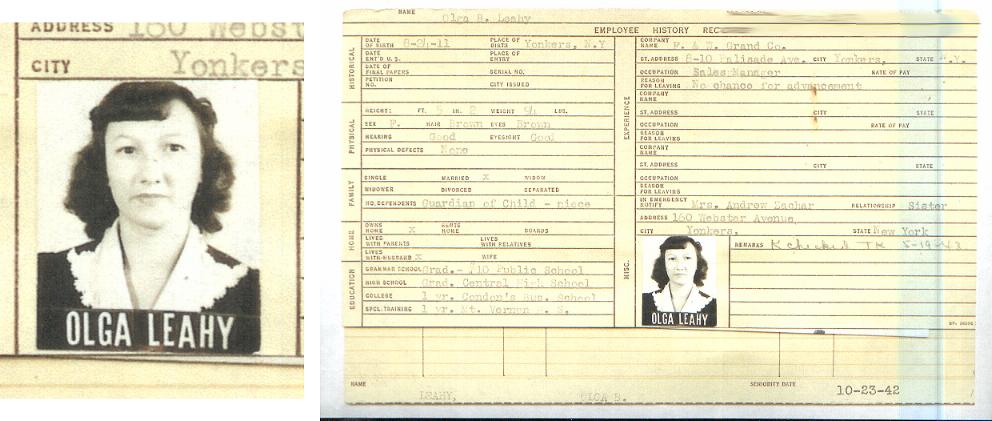 ADDRESS 160 Webst
CITY Yonkers
OLGA LEAHY
NAME Olga B. Leahy
EMPLOYEE HISTORY REC
HISTORICAL
DATE OF BIRTH 8-24-11 PLACE OF BIRTH Yonkers, N.Y
DATE ENT'D U.S. PLACE OF ENTRY
DATE OF FINAL PAPERS SERIAL NO.
PETITION NO. CITY ISSUED
PHYSICAL
HEIGHT: FT. 5 IN. 2 WEIGHT LBS.
SEX F. HAIR Brown EYES Brown
HEARING Good EYESIGHT Good
PHYSICAL DEFECTS None
FAMILY
SINGLE MARRIED X WIDOW
WIDOWER DIVORCED SEPARATED
NO. DEPENDENTS Guardian of Child - niece
HOME
OWNS HOME X RENTS HOME BOARDS
LIVES WITH PARENTS LIVES WITH RELATIVES
LIVES WITH-HUSBAND X WIFE
EDUCATION
GRAMMAR SCHOOL Grad. - #10 Public School
HIGH SCHOOL Grad. Central High School
COLLEGE 1 yr. Condon's Bus. School
SPCL. TRAINING 1 yr. Mt. Vernon H. S.
EXPERIENCE
COMPANY NAME F. & W. Grand Co.
ST. ADDRESS 8-10 Palisade Ave. CITY Yonkers, STATE N.Y.
OCCUPATION Sales Manager RATE OF PAY
REASON FOR LEAVING No chance for advancement
COMPANY NAME
ST. ADDRESS CITY STATE
OCCUPATION RATE OF PAY
REASON FOR LEAVING
COMPANY NAME
ST. ADDRESS CITY STATE
OCCUPATION
REASON FOR LEAVING
MISC.
IN EMERGENCY NOTIFY Mrs. Andrew Zachar RELATIONSHIP Sister
ADDRESS 160 Webster Avenue,
CITY Yonkers. STATE New York
REMARKS Kchecked TK 5-19-43
OLGA LEAHY
NAME LEAHY, OLGA B. SENIORITY DATE 10-23-42